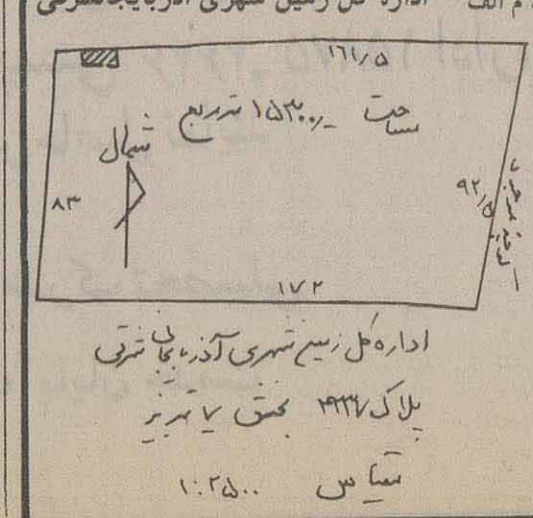 م الف اداره کل زمین شهری آذربایجانشرقی
۱۶۱/۵
مساحت ۱۵۳۰۰/- متر مربع
شمال
۸۳
۹۲/۵
۱۷۲
اداره کل زمین شهری آذربایجان شرقی
پلاک بخش ۷ تبریز
مقیاس ۱:۲۵۰۰